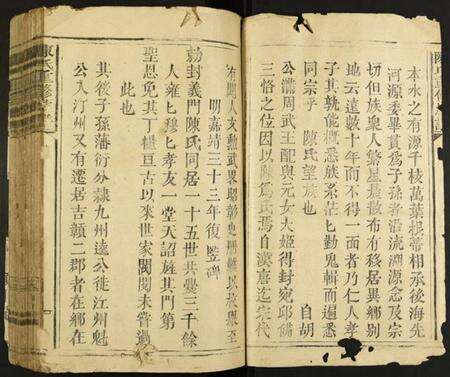 本水之有源千枝萬葉根蒂相承後海先
河源委畢貫為子孫者沿流溯源念及宗
切但族衆人繁星散布有移居異鄉別
地云遠數十年而不得一面者乃仁人孝
子其孰能慨悉族系茫匕勤鬼輯而遍悉
同宗乎 陳氏望族也 自胡
公滿周武王配與元女大姬得封宛邱備
三恪之位因以陳為氏焉自漢唐迄宋代
有聞人文勲武
明嘉靖三十三年復豎碑
勑封義門陳氏同居一十五世共爨三千餘
人雍匕穆匕孝友一堂天詔旌其門第
聖恩免其丁糧亘古以來世家閥閱未嘗過
此也
其後子孫蕃衍分隸九州遠公徙江州魁
公入汀州又有遷居吉贛二郡者在鄉在